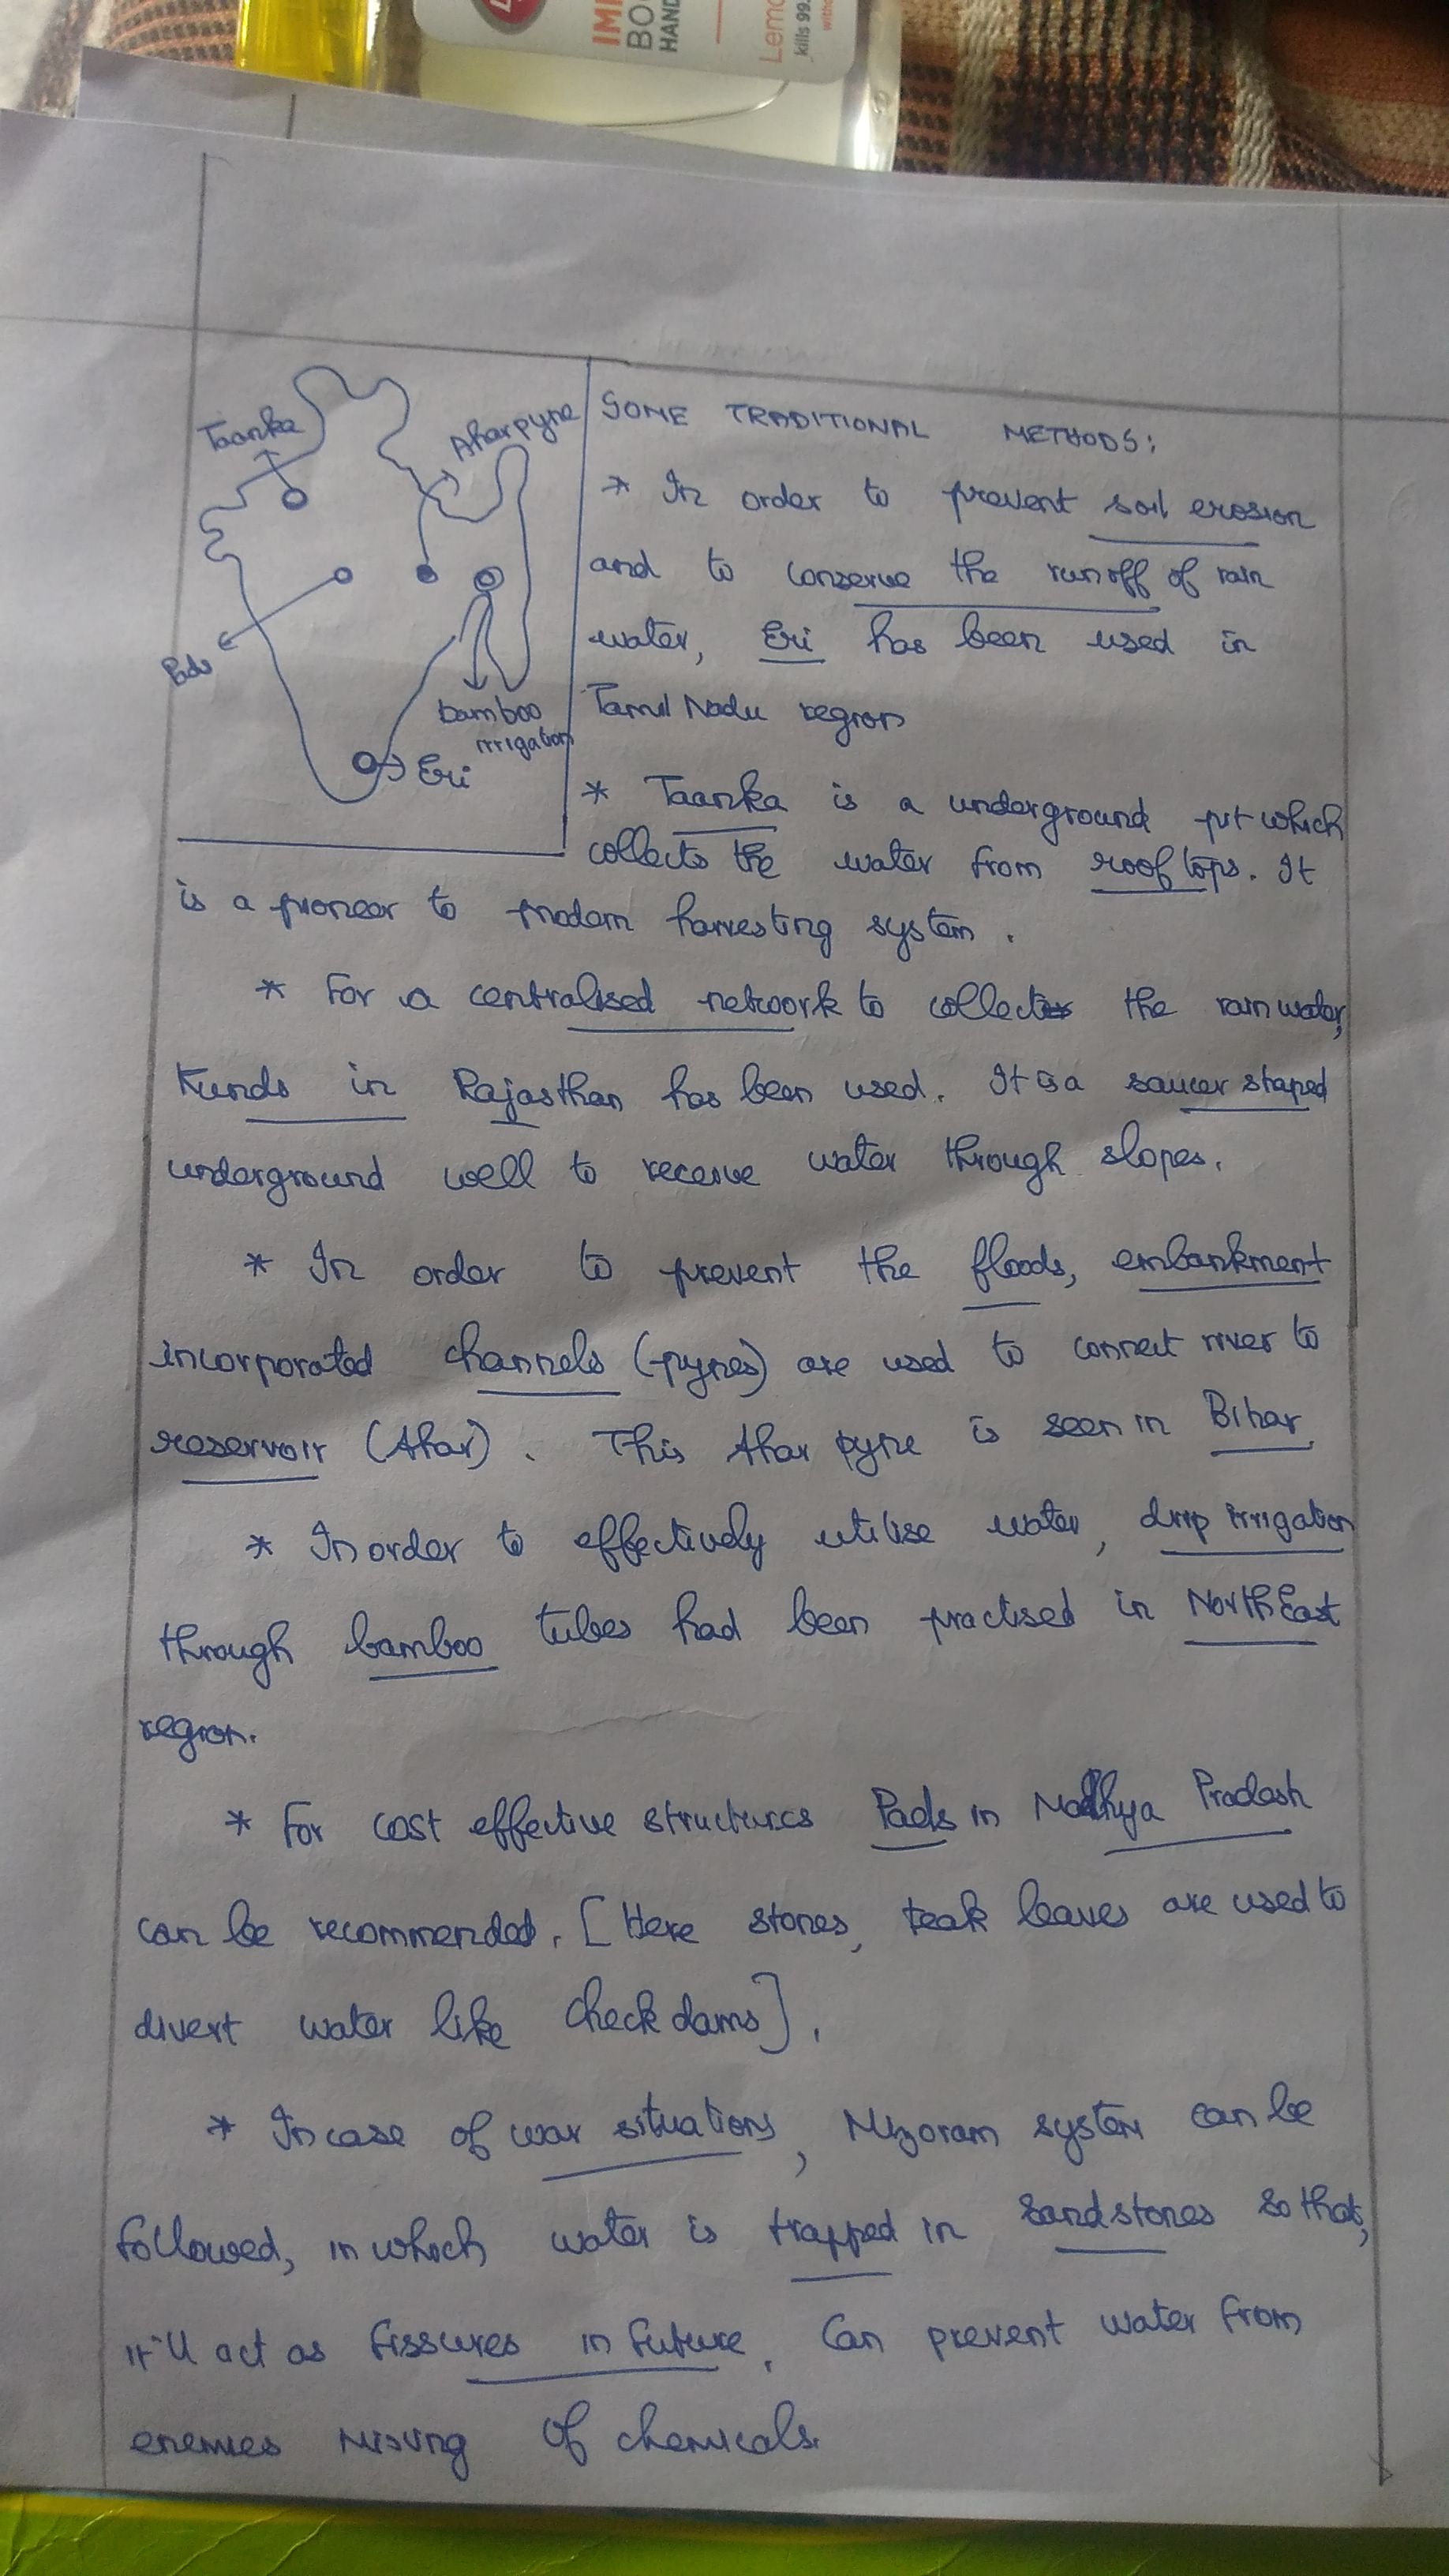 IM
BO
HAND
Lemo
kills 99.
witho
Taanka
Aharpyne
Pads
bamboo
irrigation
Eri
SOME TRADITIONAL METHODS:
* In order to prevent soil erosion
and to conserve the runoff of rain
water, Eri has been used in
Tamil Nadu region
* Taanka is a underground pit which
collects the water from roof tops. It
is a pioneer to modern harvesting system.
* For a centralised network to collect the rain water,
Kunds in Rajasthan has been used. It is a saucer shaped
underground well to receive water through slopes.
* In order to prevent the floods, embankment
incorporated channels (pynes) are used to connect river to
reservoir (Ahar). This Ahar pyne is seen in Bihar.
* In order to effectively utilise water, drip irrigation
through bamboo tubes had been practised in North East
region.
* For cost effective structures Pads in Madhya Pradesh
can be recommended. [Here stones, teak leaves are used to
divert water like check dams].
* In case of war situations, Mizoram system can be
followed, in which water is trapped in sandstones so that,
it'll act as fissures in future. Can prevent water from
enemies mixing of chemicals.